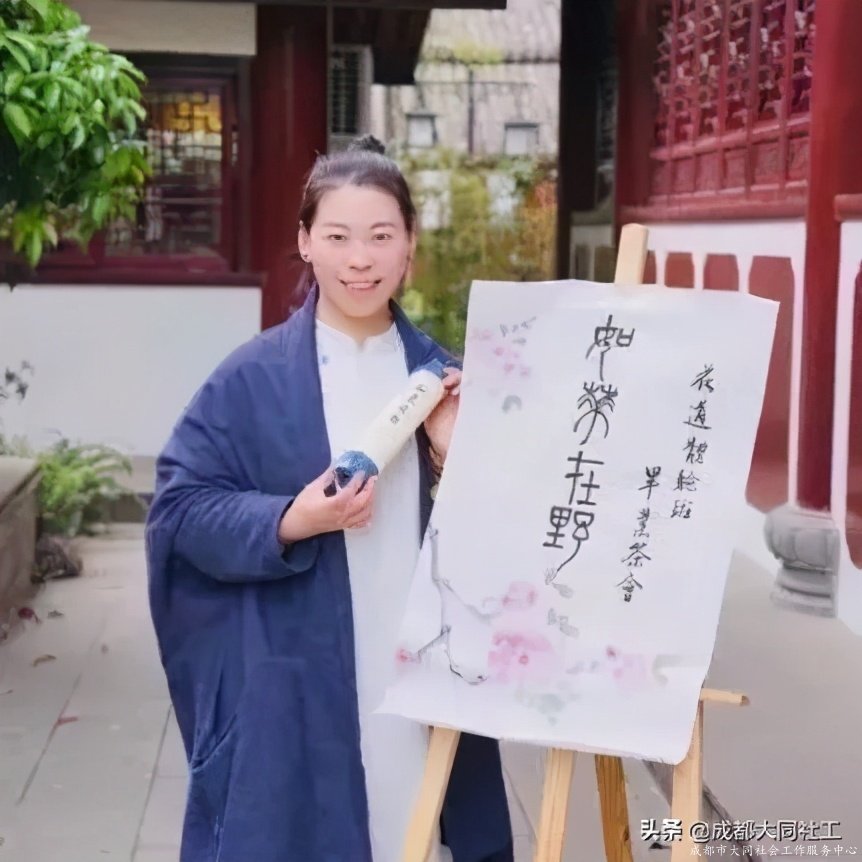 花道體驗班
畢業茶會
如華在野
头条 @成都大同社工
成都市大同社会工作服务中心